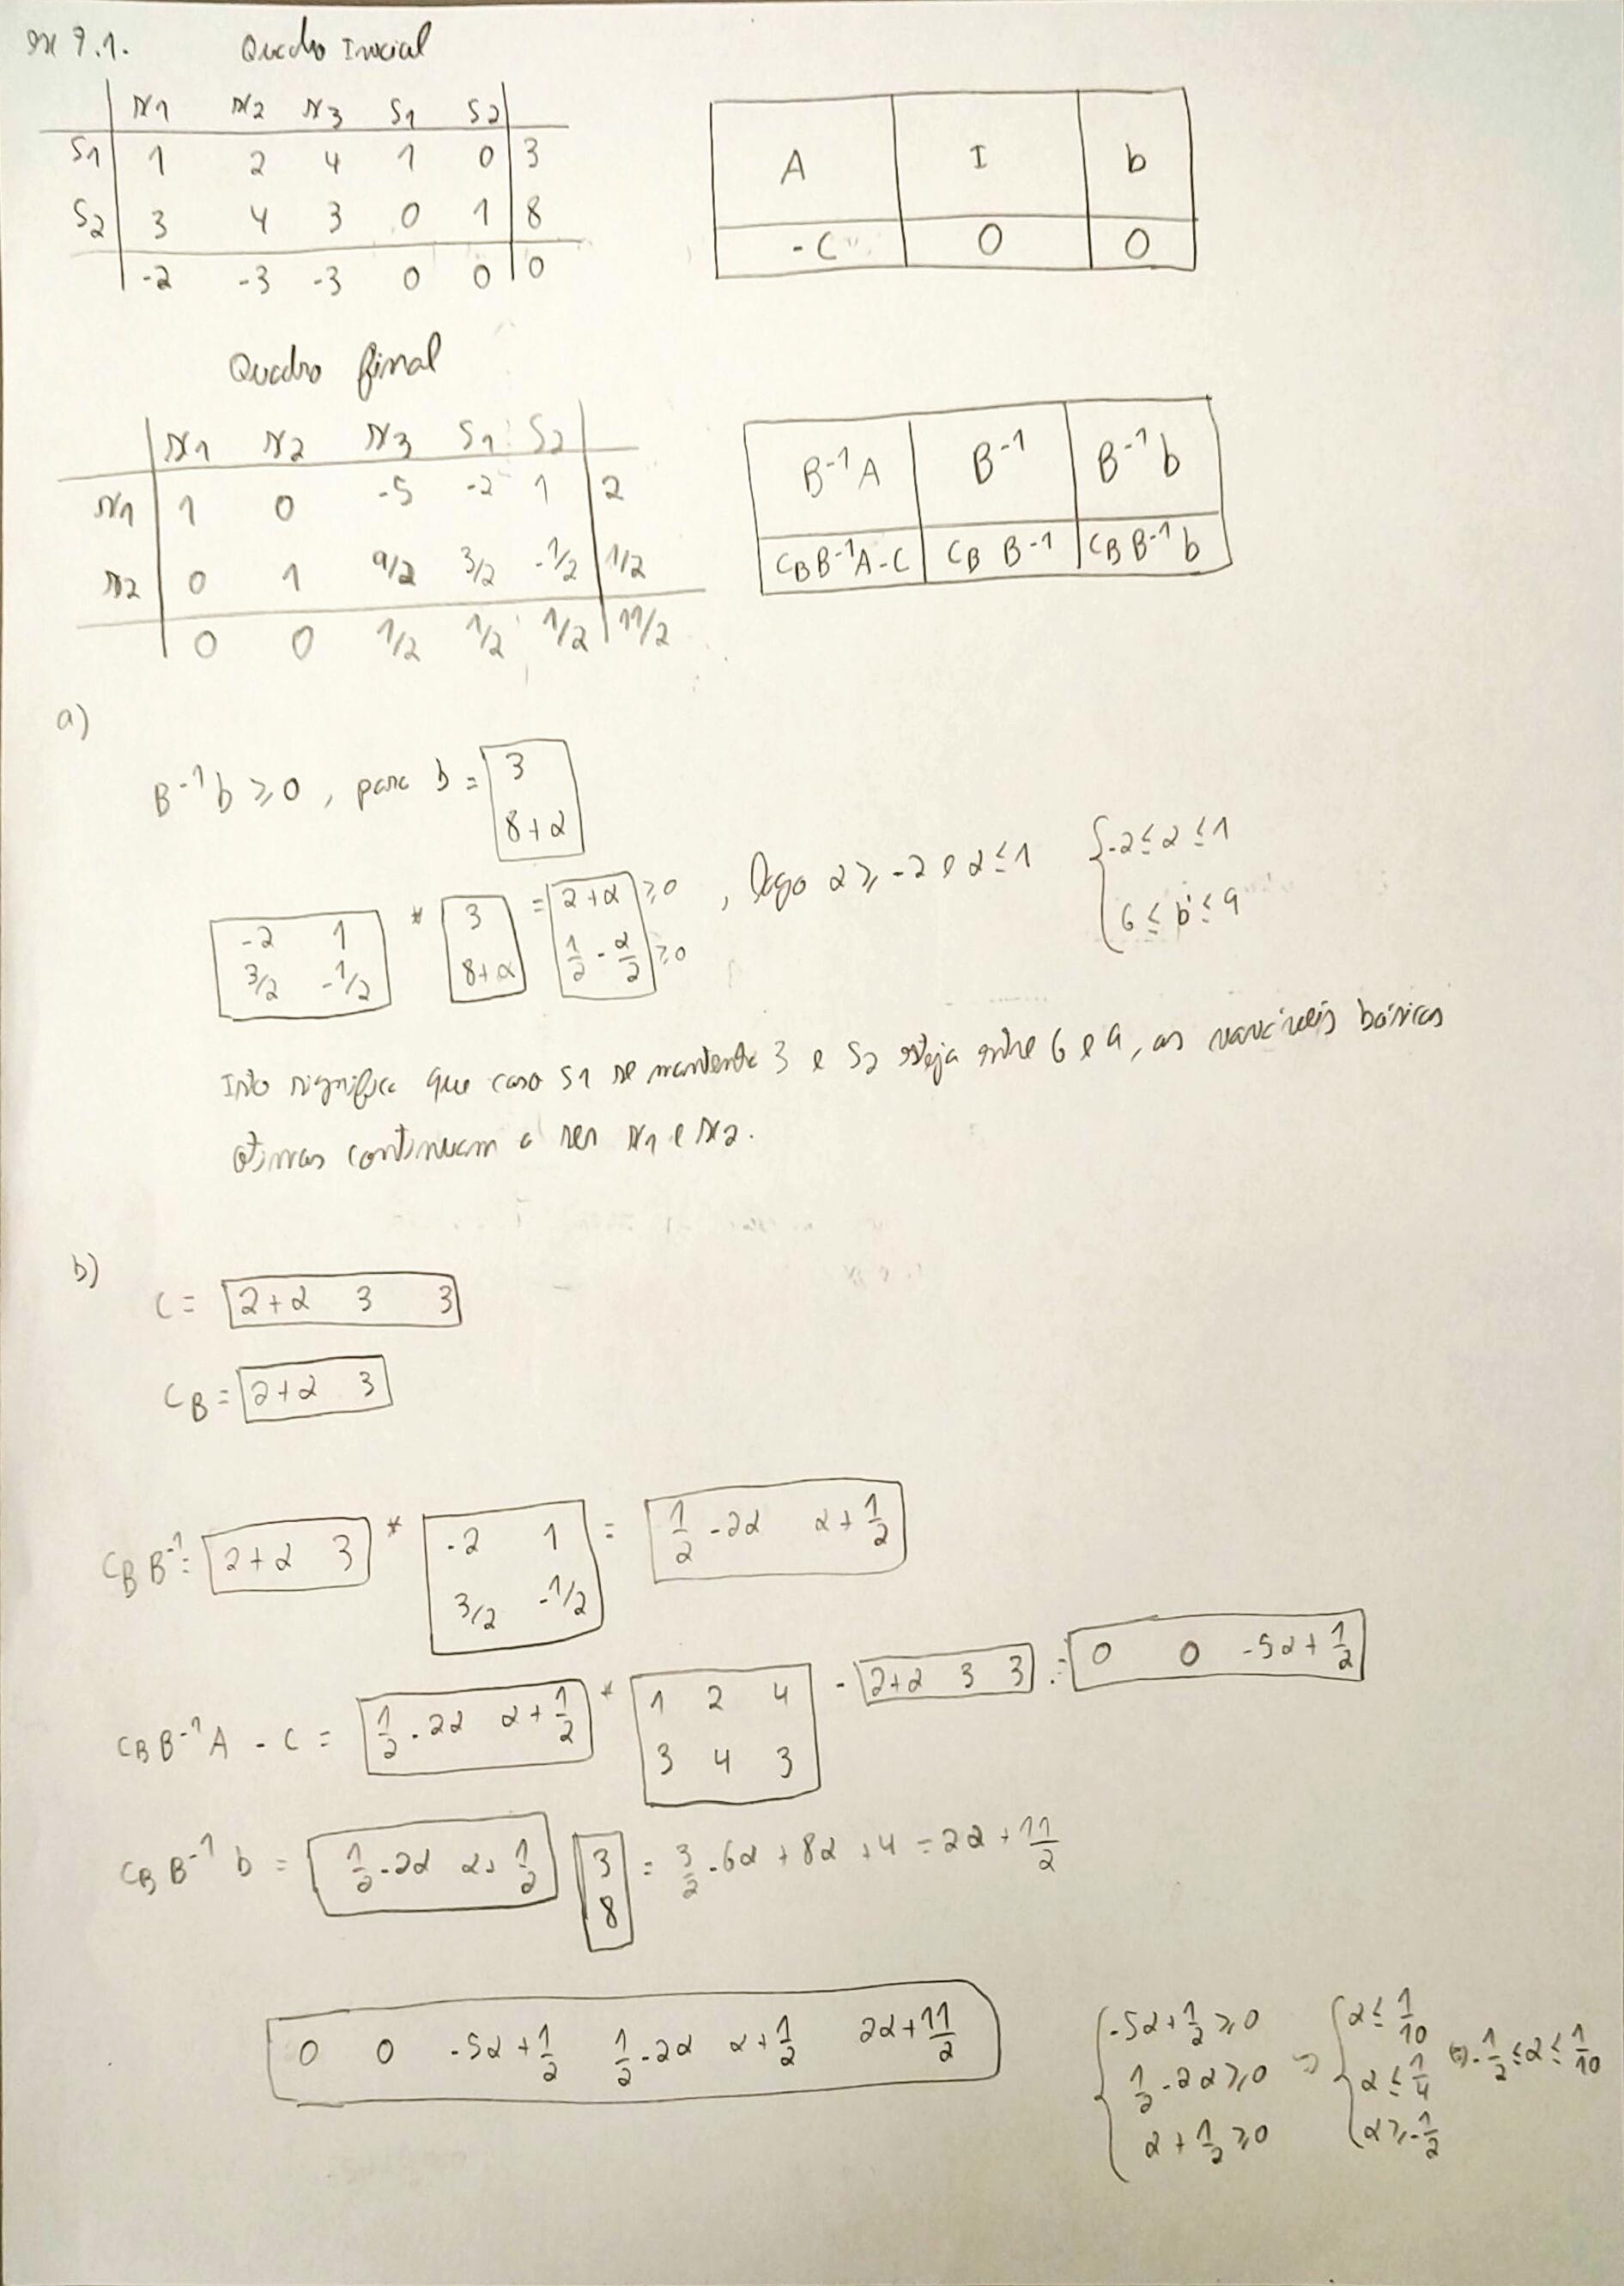 ex 7.1. Quadro Inicial
x1 x2 x3 s1 s2
s1 1 2 4 1 0 3
s2 3 4 3 0 1 8
-2 -3 -3 0 0 0
A I b
-C 0 0
Quadro final
x1 x2 x3 s1 s2
x1 1 0 -5 -2 1 2
x2 0 1 9/2 3/2 -1/2 1/2
0 0 1/2 1/2 1/2 11/2
B-1A B-1 B-1b
CBB-1A-C CB B-1 CB B-1 b
a)
B-1b ≥ 0, para b = 3
8+α
-2 1 * 3 = 2+α ≥0 , logo α ≥ -2 e α ≤ 1 { -2 ≤ α ≤ 1
3/2 -1/2 8+α 1/2 - α/2 ≥0 6 ≤ b ≤ 9
Isto significa que caso s1 se mantenha 3 e s2 esteja entre 6 e 9, as variáveis básicas
ótimas continuam a ser x1 e x2.
b)
C = 2+α 3 3
CB = 2+α 3
CB B-1 = 2+α 3 * -2 1 = 1/2 -2α α + 1/2
3/2 -1/2
CB B-1 A - C = 1/2 -2α α + 1/2 * 1 2 4 - 2+α 3 3 = 0 0 -5α + 1/2
3 4 3
CB B-1 b = 1/2 -2α α + 1/2 3 = 3/2 -6α + 8α + 4 = 2α + 11/2
8
0 0 -5α + 1/2 1/2 -2α α + 1/2 2α + 11/2
{ -5α + 1/2 ≥ 0 => { α ≤ 1/10
1/2 -2α ≥ 0 α ≤ 1/4 -1/2 ≤ α ≤ 1/10
α + 1/2 ≥ 0 α ≥ -1/2